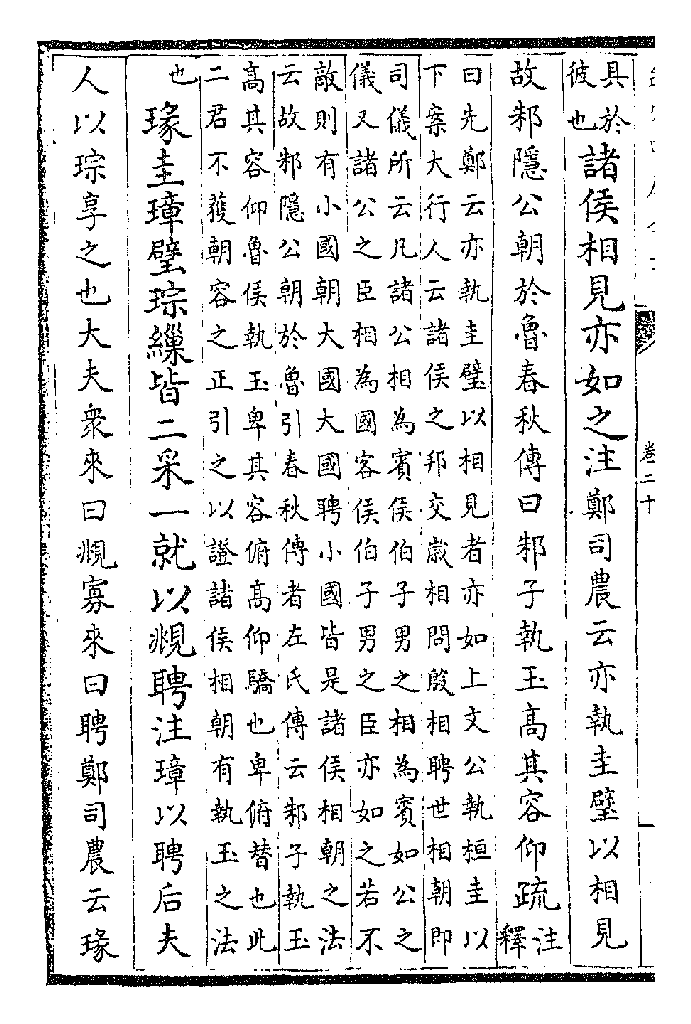 卷二十
具於
彼也
諸侯相見亦如之注鄭司農云亦執圭璧以相見
故邾隱公朝於魯春秋傳曰邾子執玉高其容仰疏
注
釋
曰先鄭云亦執圭璧以相見者亦如上文公執桓圭以
下案大行人云諸侯之邦交歲相問殷相聘世相朝即
司儀所云凡諸公相為賓侯伯子男之相為賓如公之
儀又諸公之臣相為國客侯伯子男之臣亦如之若不
敵則有小國朝大國大國聘小國皆是諸侯相朝之法
云故邾隱公朝於魯引春秋傳者左氏傳云邾子執玉
高其容仰魯侯執玉卑其容俯高仰驕也卑俯替也此
二君不獲朝容之正引之以證諸侯相朝有執玉之法
也
瑑圭璋璧琮繅皆二采一就以覜聘注璋以聘后夫
人以琮享之也大夫衆來曰覜寡來曰聘鄭司農云瑑